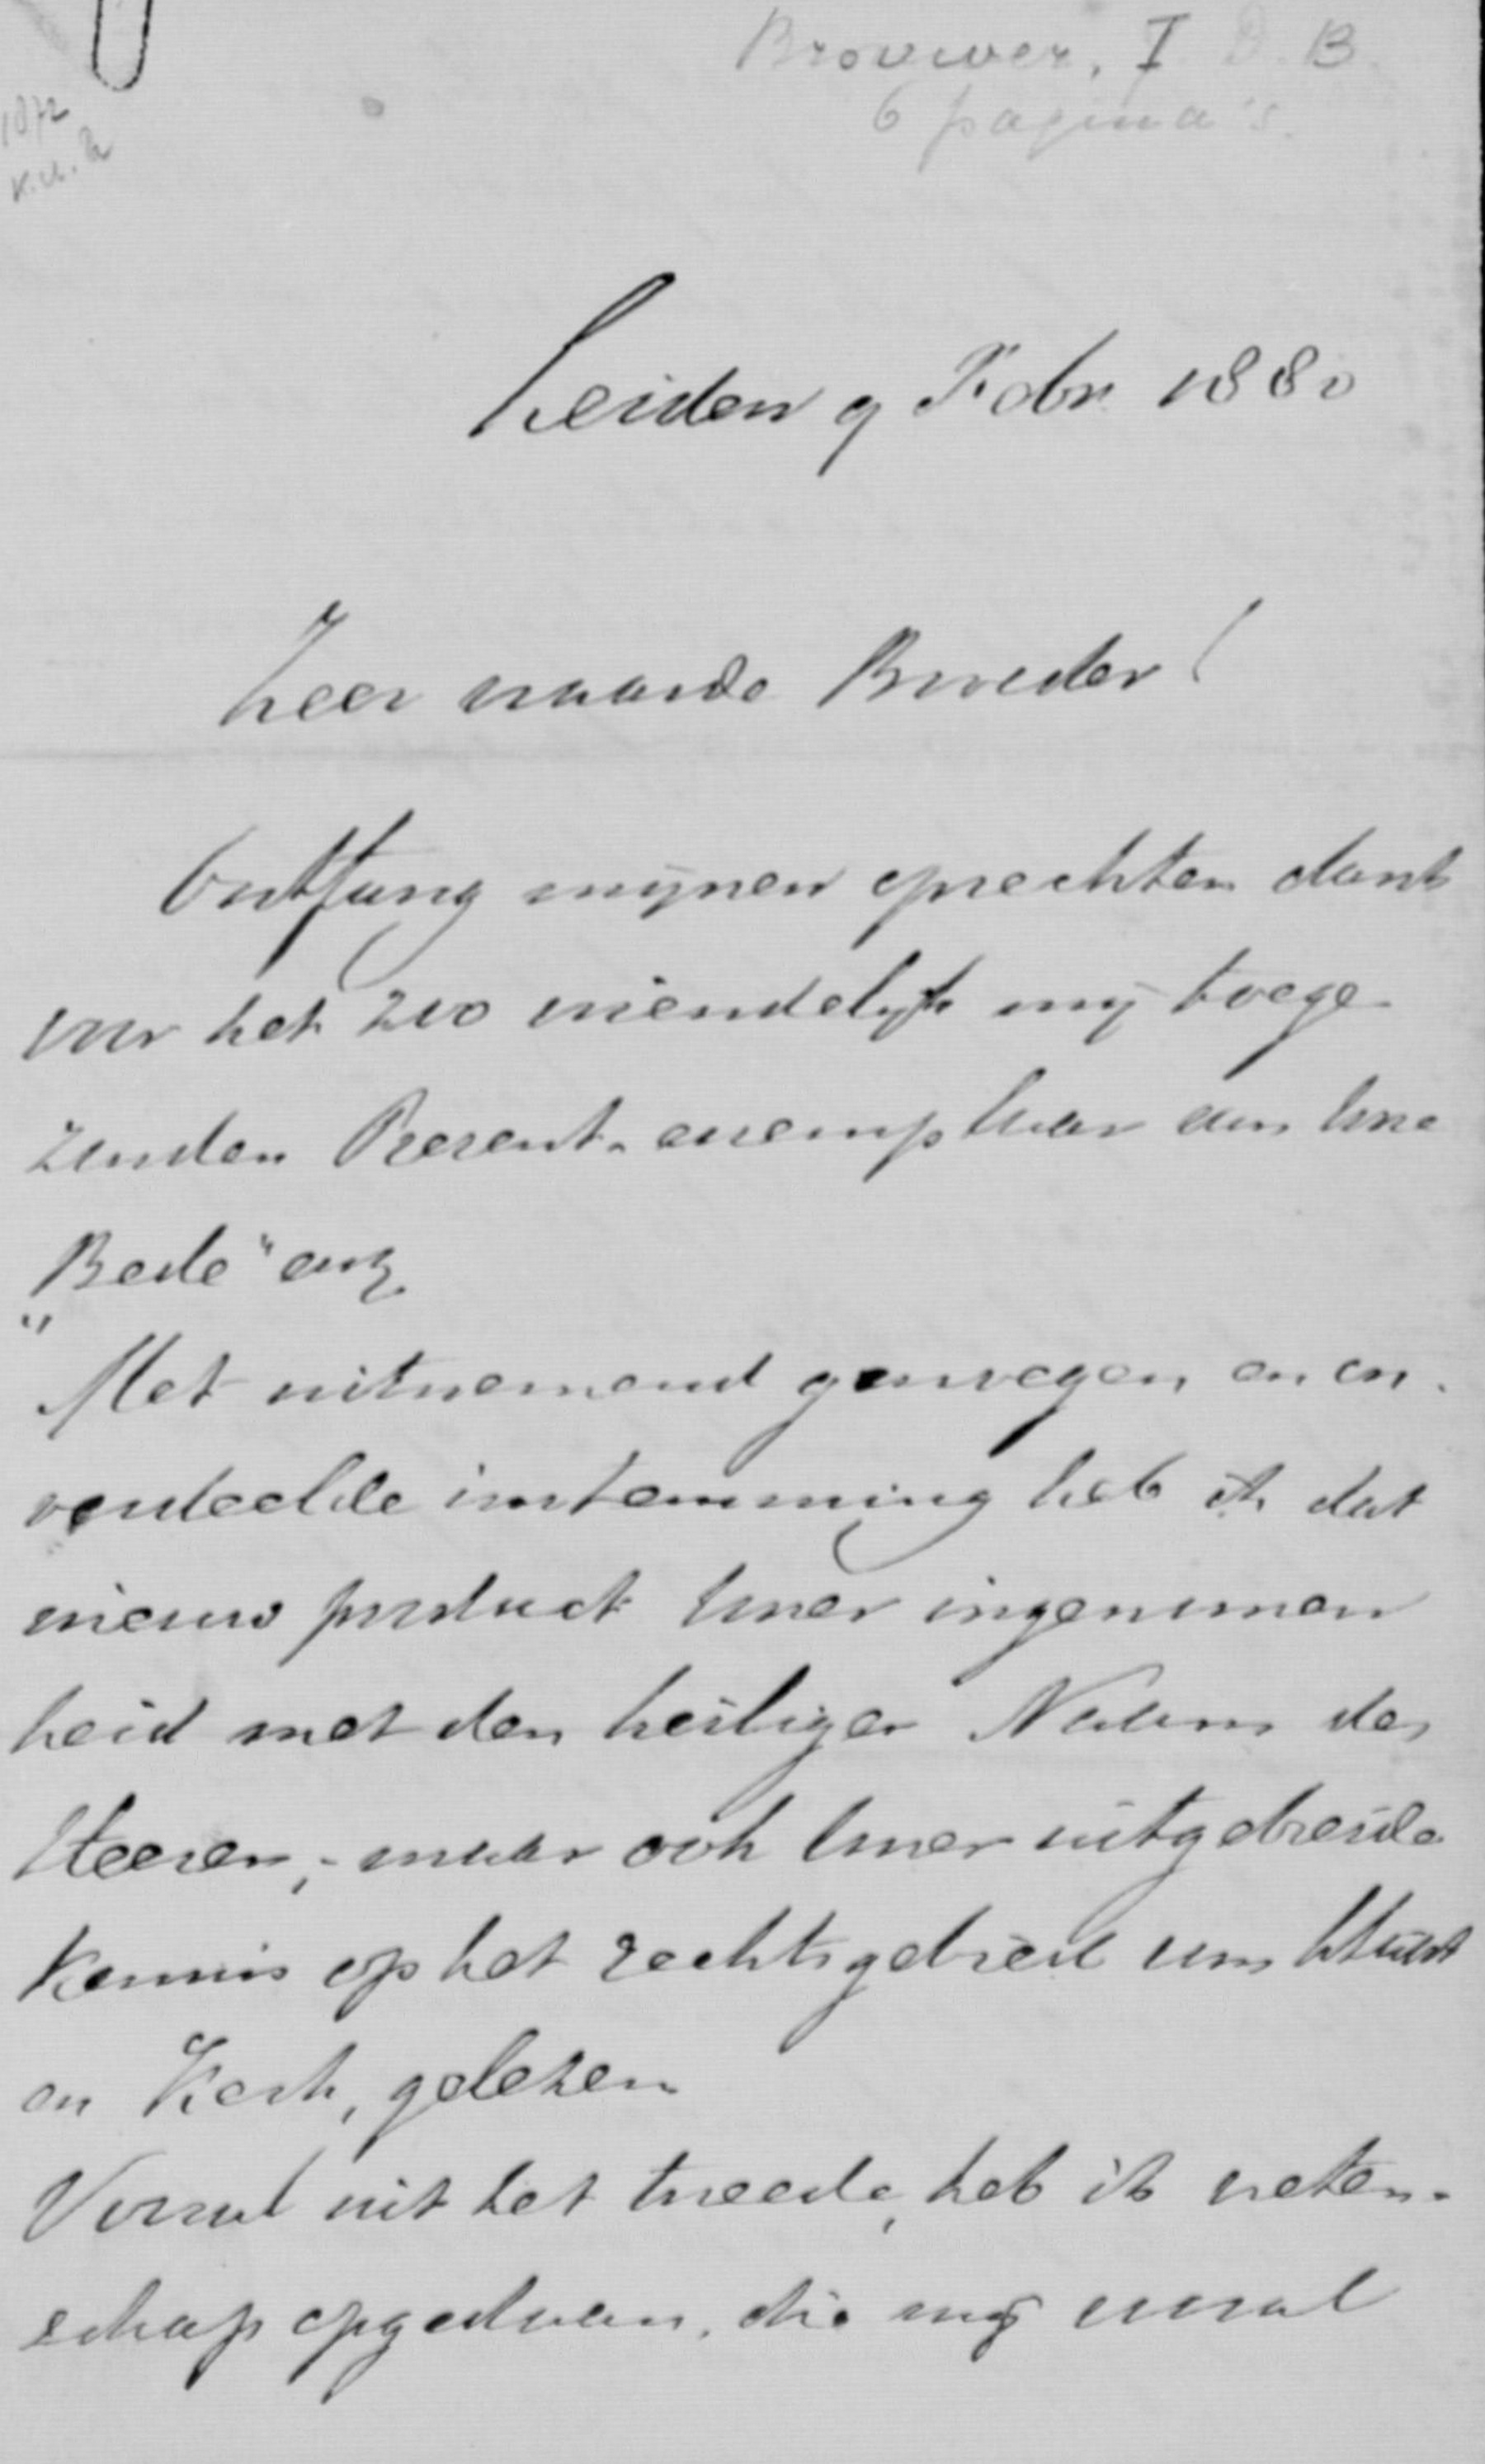 Brouwer, I D. B.
6 pagina's.
1872
Leiden 9 Febr. 1880
Zeer waarde Broeder!
Ontfang mijnen oprechten dank
voor het zoo vriendelijk mij toege
zonden Present-exemplaar van Uwe
„Bede" enz.
Met uitnemend genoegen, en on-
verdeelde instemming heb ik dat
nieuw product Uwer ingenomen
heid met den heiligen Naam des
Heeren, - maar ook Uwer uitgebreide
kennis op het rechtsgebied van Staat
en Kerk, gelezen
Vooral uit het tweede, heb ik weten-
schap opgedaan, die mij vooral